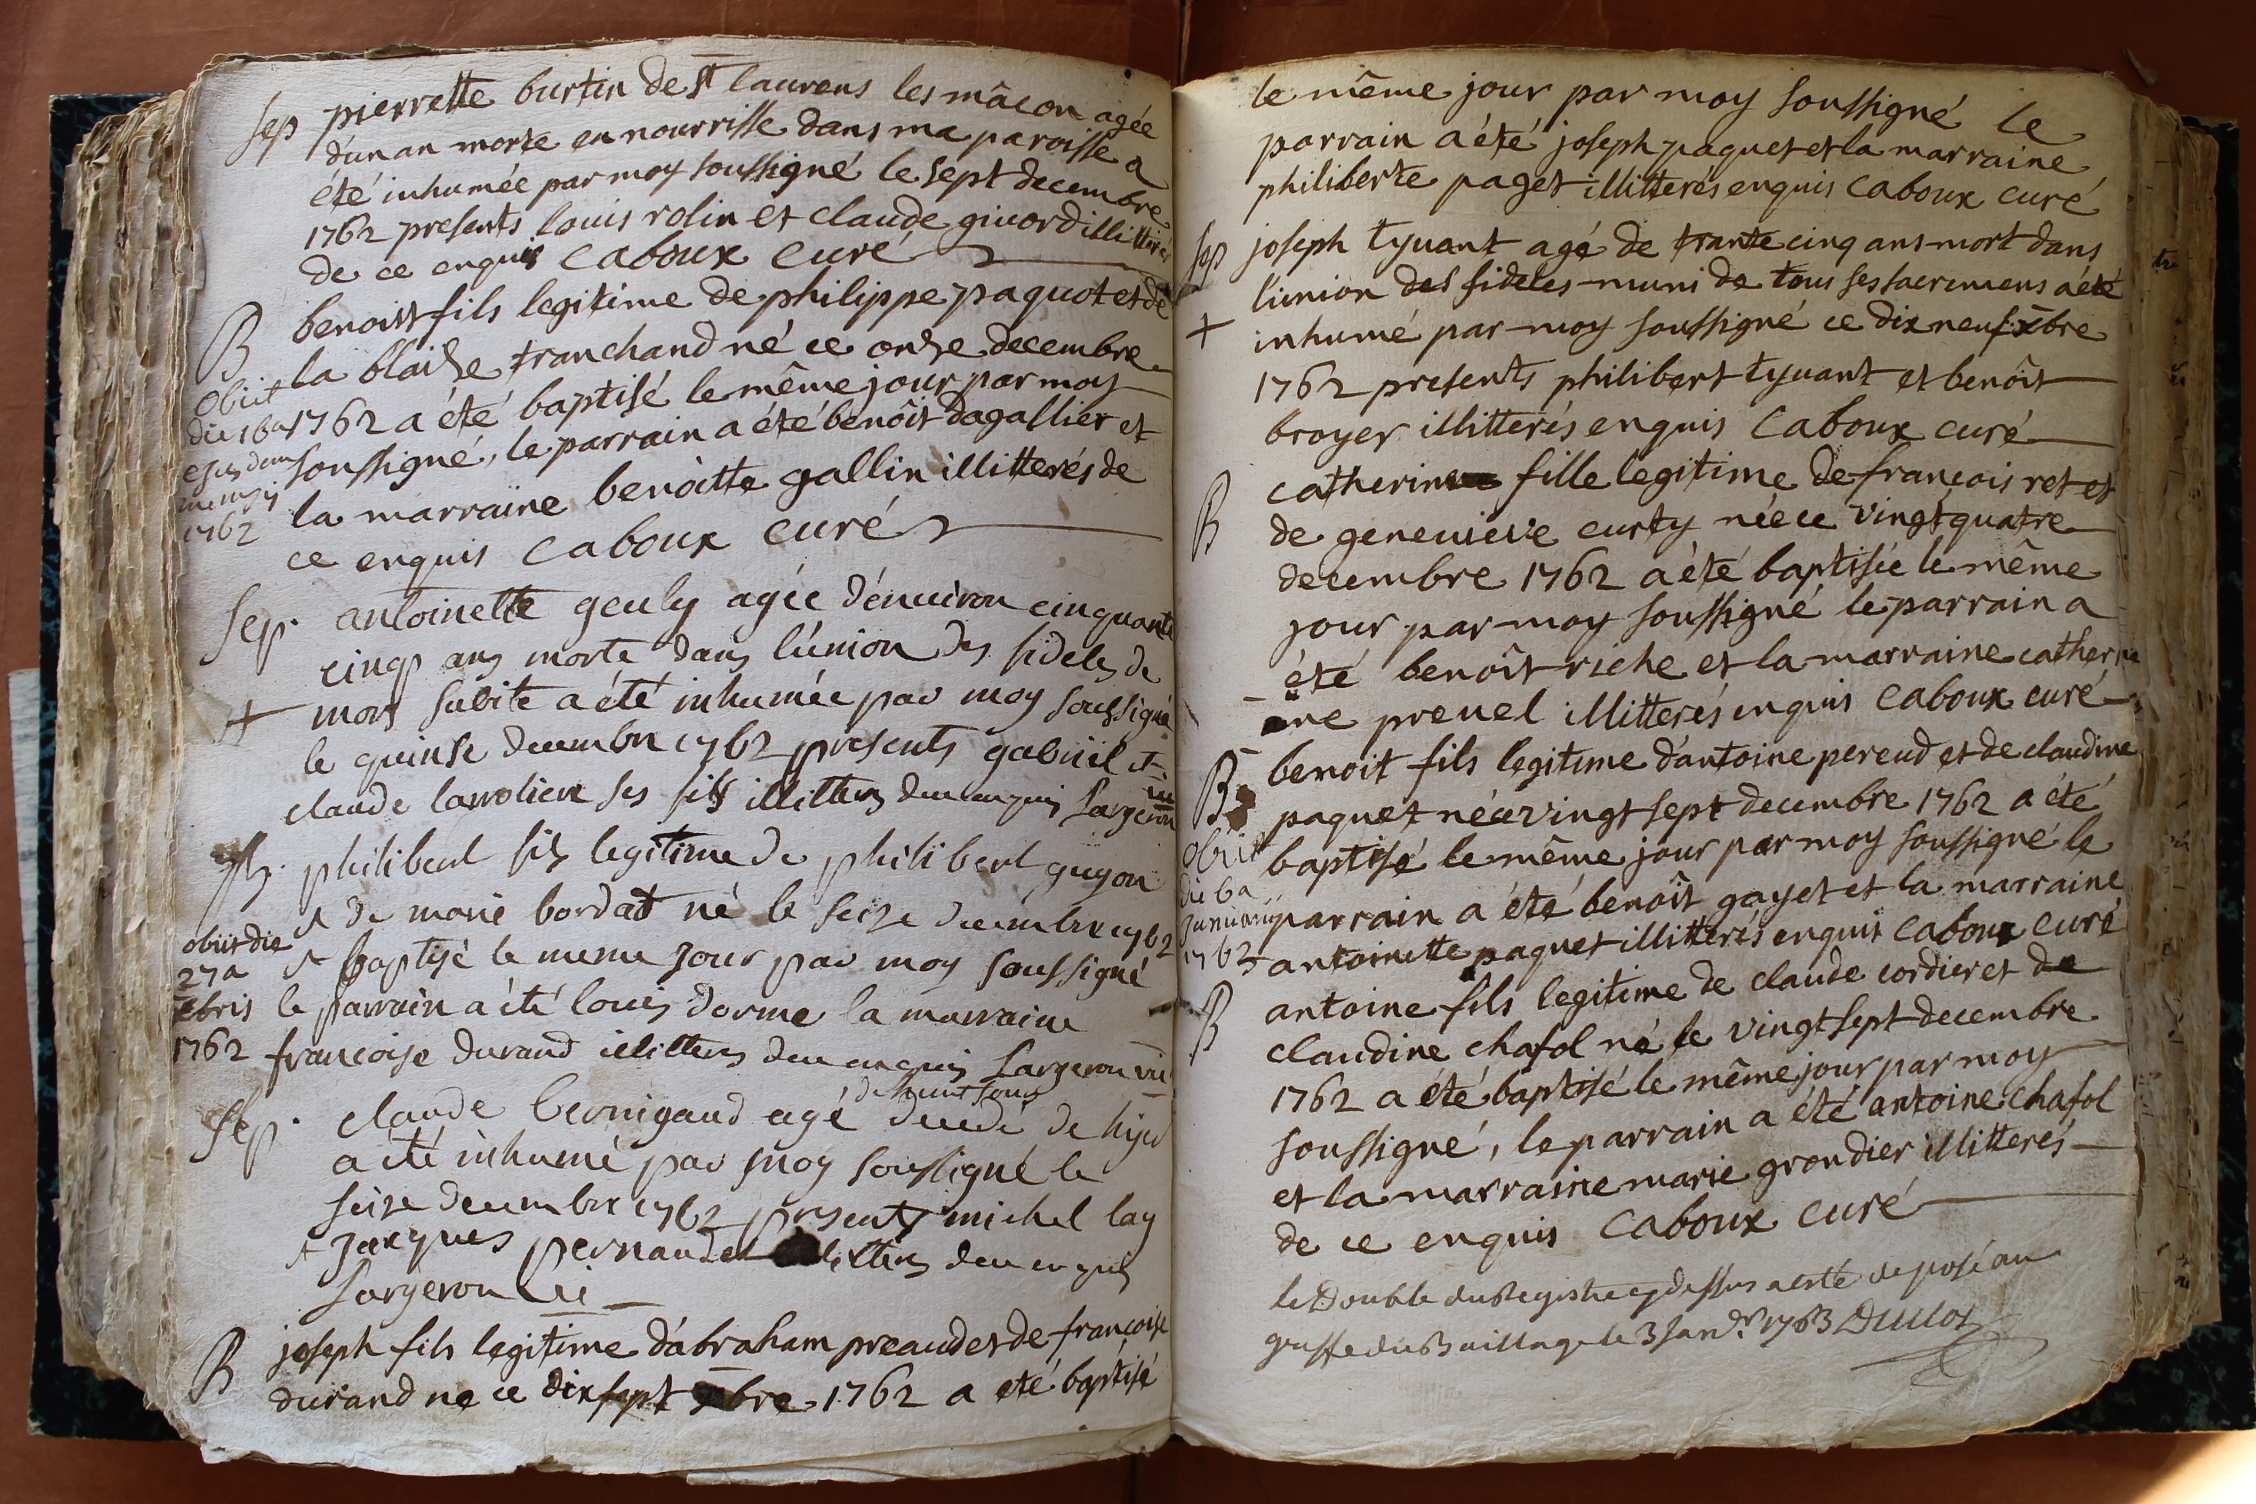 Sep pierrette burtin de St laurens les mâcon agée
d'un an morte en nourrisse dans ma paroisse a
été inhumée par moy soussigné le sept decembre
1762 presents louis rolin et claude givord illitterés
de ce enquis Caboux curé
B benoist fils legitime de philippe paquot et de
la blaize tranchand né ce onze decembre
1762 a été baptisé le même jour par moy
soussigné, le parrain a été benôit dagallier et
la marraine benoitte gallin illitterés de
ce enquis Caboux curé
Obiit
die 16a
ejusdem
mensis
1762
Sep. antoinette geuly agée d'énuiron cinquante
cinq ans morte dans l'union des fideles de
+ mort subite a été inhumée par moy soussigné
le quinse decembre 1762 presents gabriel et
claude larrotiere ses fils illitters de ce enquis Largeron
vic
philibert fils legitime de philibert guyon
et de marie bordat né le seize decembre 1762
et baptisé le meme jour par moy soussigné
le parrain a été louis dorme la marraine
francoise durand illitters de ce enquis Largeron vic
obiit die
27a
xbris
1762
Sep. claude bernigaud agé de huit jours decedé de hyer
a été inhumé par moy soussigné le
seize decembre 1762 presents michel lay
et jacques pernaudet illitters de ce enquis
Largeron vic
B joseph fils legitime d'abraham preaud et de francoise
durand ne ce dix sept xbre 1762 a eté baptisé
le même jour par moy soussigné le
parrain a été joseph paquet et la marraine
philiberte paget illitterés enquis Caboux curé
Sep joseph tyuant agé de trante cinq ans mort dans
l'union des fideles muni de tous ses sacremens a été
+ inhumé par moy soussigné ce dix neuf xbre
1762 presents philibert tyuant et benôit
broyer illitterés enquis Caboux curé
B catherine fille legitime de francois ret et
de genevieve curty née ce vingt quatre
decembre 1762 a été baptisée le même
jour par moy soussigné le parrain a
été benoît riche et la marraine catheri
ne prevel illitterés enquis Caboux curé
B benoit fils legitime d'antoine perend et de claudine
paquet né ce vingt sept decembre 1762 a été
baptisé le même jour par moy soussigné le
parrain a été benoît gayet et la marraine
antoinette paquet illitterés enquis Caboux curé
obiit
die 6a
januarii
1763
B antoine fils legitime de claude cordier et de
claudine chafol né le vingt sept decembre
1762 a été baptisé le même jour par moy
soussigné, le parrain a été antoine chafol
et la marraine marie grondier illitterés
de ce enquis Caboux curé
le Double du Registre cy dessus a esté deposé au
greffe du Bailliage le 3 Janvr 1763 Duclos